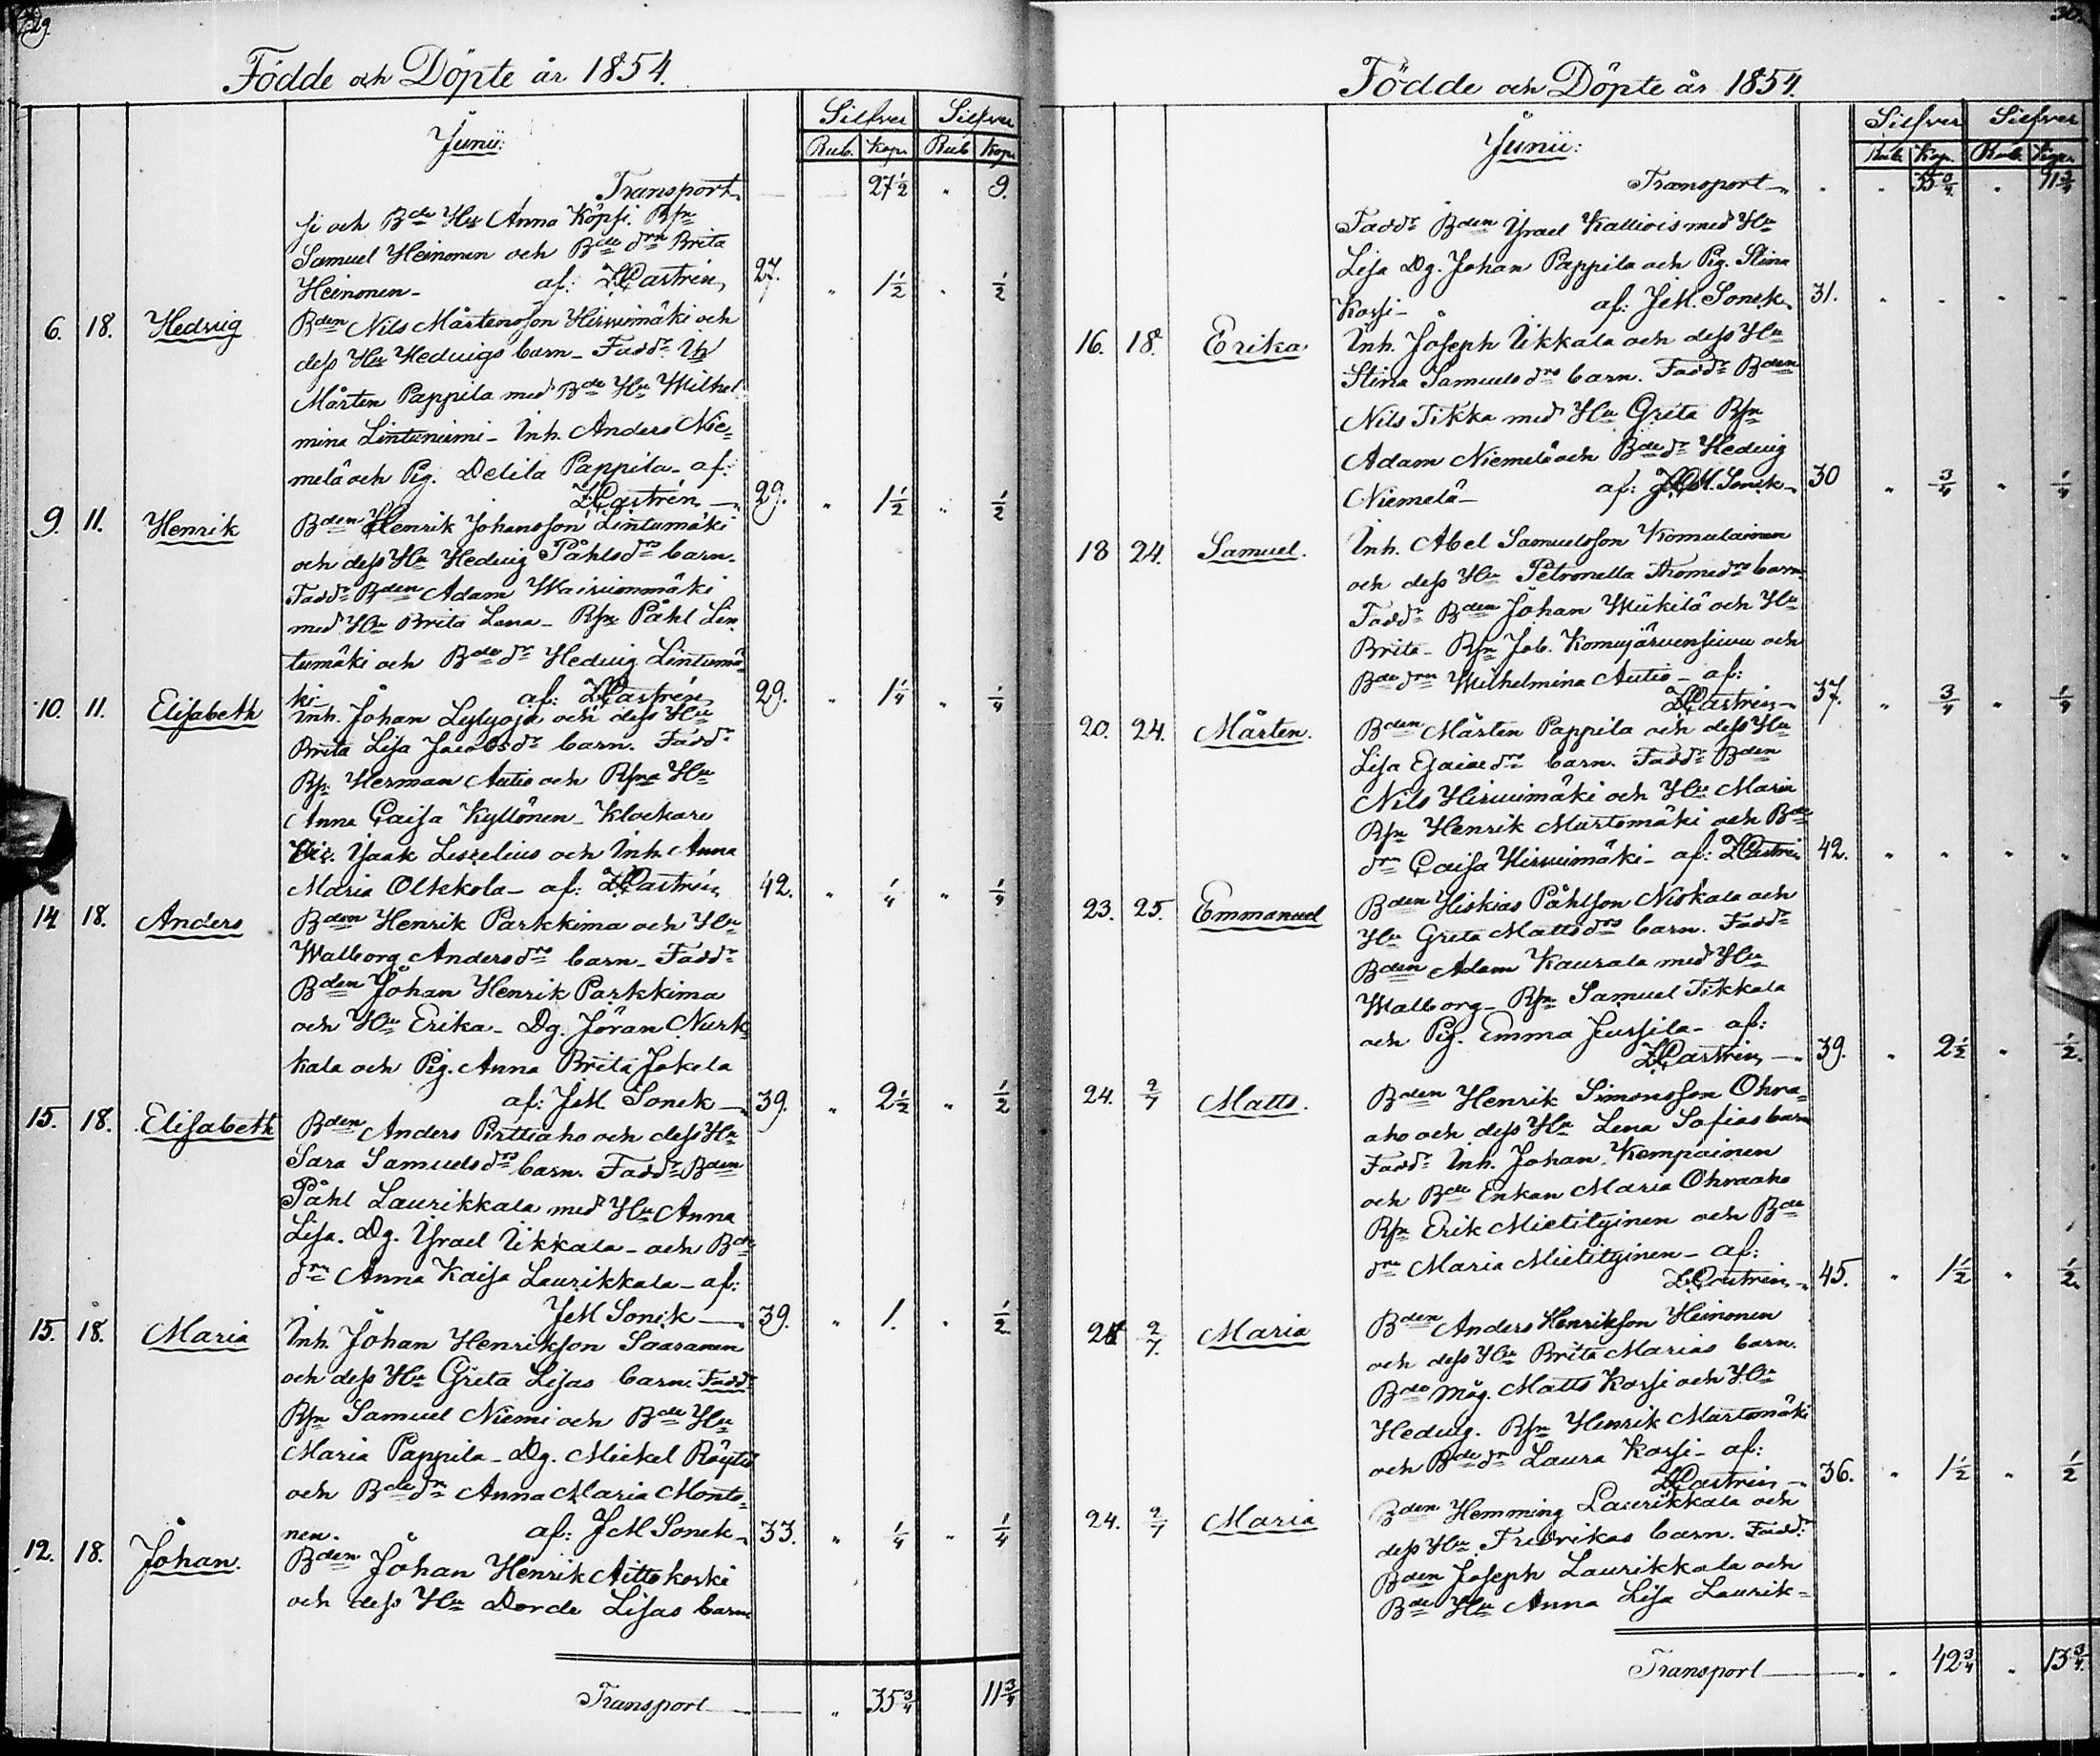 29.
Födde och Döpte år 1854.
Silfver Silfver
Junii: Rub. Kop. Rub Kop.
Transport 27½ " 9.
si och Bde Hu Anna Köpsi. Rfn
Samuel Heinonen och Bde drn Brita
Heinonen- af: ZCastrén 27. " 1½ " ½
6. 18. Hedvig Bden Nils Mårtensson Hirvimäki och
dess Hu Hedvigs barn- Faddr
Mårten Pappila med Bde Hu Wilhel
mina Lintuniemi- Inh. Anders Nie-
melä och Pig. Delila Pappila- af:
ZCastrén 29. " 1½ " ½
9. 11. Henrik Bden Henrik Johansson Lintumäki
och dess Hu Hedvig Påhlsdrs barn.
Faddr Bden Adam Wairionmäki
med Hu Brita Lena- Rfn Påhl Lin
tumäki och Bde dr Hedvig Lintumä
ki- af: ZCastrén 29. " 1¼ " ¼
10. 11. Elisabeth Inh. Johan Lylyoja och dess Hu
Brita Lisa Jacobsdr barn. Faddr
Rfn Herman Autio och Rfns Hu
Anna Caisa Kyllönen- Klockare
Vic. Isaak Leszelius och Inh. Anna
Maria Olkkola- af: ZCastrén 42. " ¼ " ¼
14 18. Anders Bden Henrik Parkkima och Hu
Walborg Andersdrs barn- Faddr
Bden Johan Henrik Parkkima
och Hu Erika- Dg. Jöran Nurk
kala och Pig. Anna Brita Jakela
af: JM Sonck 39. " 2½ " ½
15. 18. Elisabeth Bden Anders Pirttiaho och dess Hu
Sara Samuelsdrs barn. Faddr Bden
Påhl Laurikkala med Hu Anna
Lisa. Dg. Israel Ukkala- och Bde
drn Anna Kaisa Laurikkala- af:
JM Sonck 39. " 1. " ½
15. 18. Maria Inh. Johan Henriksson Saaranen
och dess Hu Greta Lisas barn. Faddr
Rfn Samuel Niemi och Bde Hu
Maria Pappila- Dg. Mickel Räytö
och Bde dr Anna Maria Monto-
nen. af: JM Sonck 33. " ¼ " ¼
12. 18. Johan. Bden Johan Henrik Aittokoski
och dess Hu Dorde Lisas barn
Transport " 35¾ 11¾
30.
Födde och Döpte år 1854.
Silfver Silfver
Junii: Rub. Kop. Rub. Kop.
Transport " 35¾ " 11¾
Faddr Bden Israel Kallivis med Hu
Lisa Dg. Johan Pappila och Pig. Stina
Korsi- af: JM. Sonck 31. " " " "
16. 18. Erika Inh. Joseph Ukkala och dess Hu
Stina Samuelsdrs barn. Faddr Bden
Nils Tikka med Hu Greta Rfn
Adam Niemelä och Bde dr Hedvig
Niemelä- af: JM. Sonck 30 " ¾ " ¼
18 24. Samuel. Inh. Abel Samuelsson Komulainen
och dess Hu Petronella Thomædrs barn
Faddr Bden Johan Wiikilä och Hu
Brita- Rfn Job. Komujärvensuu och
Bde drn Wilhelmina Autio- af:
ZCastrén 37. " ¾ " ¼
20. 24. Mårten. Bden Mårten Pappila och dess Hu
Lisa Esaiædrs barn. Faddr Bden
Nils Hirvimäki och Hu Maria
Rfn Henrik Martomäki och Bde
drn Caisa Hirvimäki- af: ZCastrén 42. " " " "
23. 25. Emmanuel Bden Hiskias Påhlson Niskala och
Hu Greta Mattsdrs barn. Faddr
Bden Adam Kaurala med Hu
Walborg- Rfn Samuel Tikkala
och Pig. Emma Jussila- af:
ZCastrén 39. " 2½ " ½.
24. 2/7 Matts. Bden Henrik Simonsson Ohra-
aho och dess Hu Lena Sofias barn
Faddr Inh. Johan Kempainen
och Bde Enkan Maria Ohraaho
Rfn Erik Mietityinen och Bde
drn Maria Mietityinen- af:
ZCastrén 45. " 1½ " ½.
24 2/7. Maria Bden Anders Henriksson Heinonen
och dess Hu Brita Marias barn.
Bde Måg. Matts Korsi och Hu
Hedvig. Rfn Henrik Martomäki
och Bde drn Laura Korsi- af:
ZCastrén 36. " 1½ " ½
24. 2/7 Maria Bden Hemming Laurikkala och
dess Hu Fredrikas barn. Faddr
Bden Joseph Laurikkala och
Bde Hu Anna Lisa Laurik-
Transport " 42¾ " 13¾.